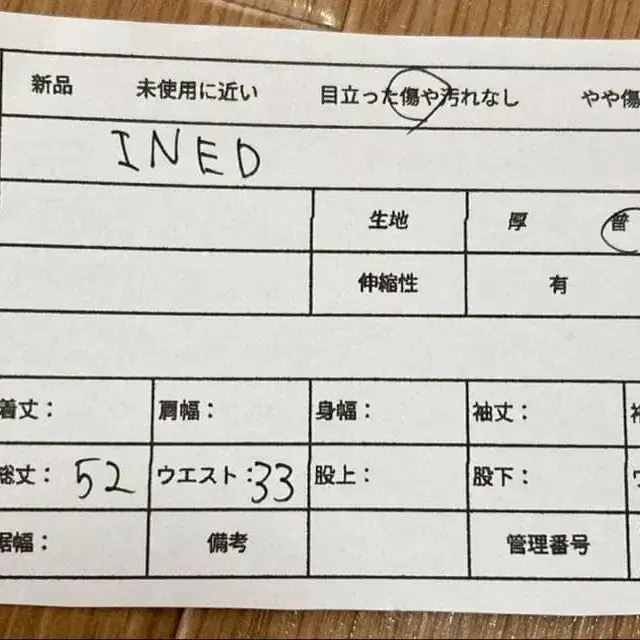 新品 未使用に近い 目立った傷や汚れなし やや傷
INED
生地 厚 普
伸縮性 有
着丈： 肩幅： 身幅： 袖丈：
総丈：52 ウエスト：33 股上： 股下：
裾幅： 備考 管理番号